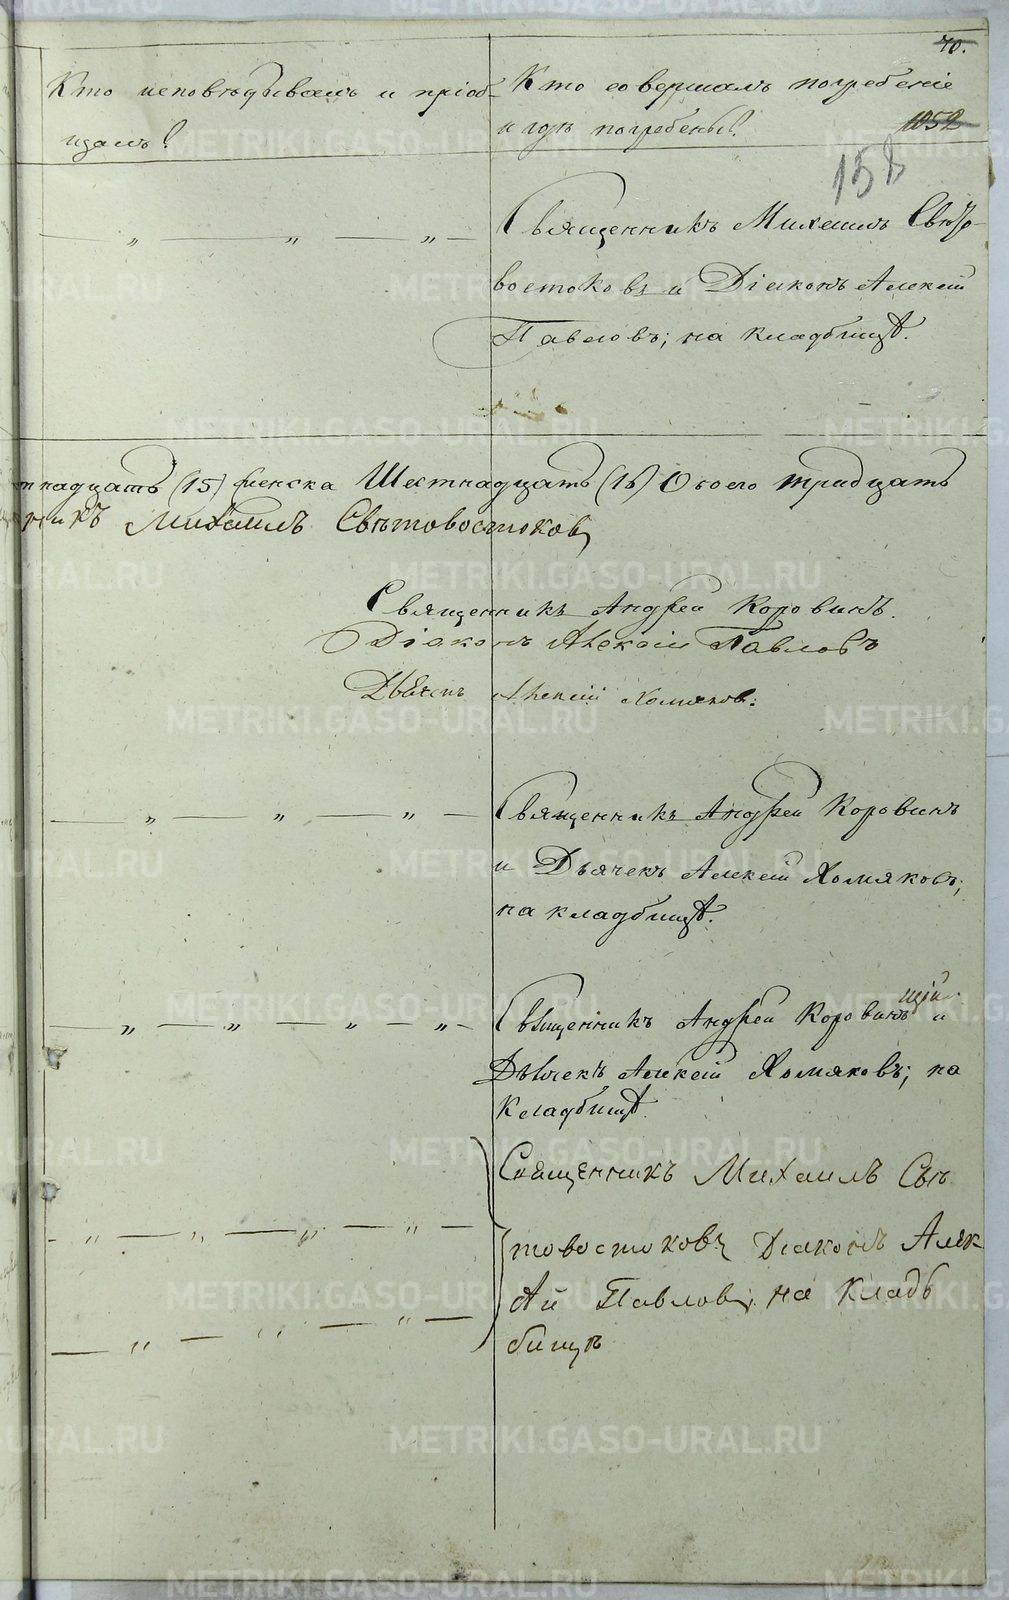 40.
Кто исповѣдывалъ и пріоб-
щалъ?
Кто совершалъ погребеніе
и гдѣ погребены?
1052
158
Священникъ Михаилъ Свѣто-
востоковъ и Діаконъ Алексій
Павловъ; на кладбищѣ.
тнадцать (15) женска Шестнадцать (16) Обоего тридцать
никъ Михаилъ Свѣтовостоковъ
Священникъ Андрей Коровинъ.
Діаконъ Алексій Павловъ
Дьячекъ Алексій Хомяковъ.
Священникъ Андрей Коровинъ
и Дьячекъ Алексій Хомяковъ;
на кладбищѣ.
Священникъ Андрей Коровинъ и
Дьячекъ Алексій Хомяковъ; на
Кладбищѣ.
Священникъ Михаилъ Свѣ
товостоковъ Діаконъ Алек
сѣй Павловъ; на Кладъ
бищѣ
METRIKI.GASO-URAL.RU